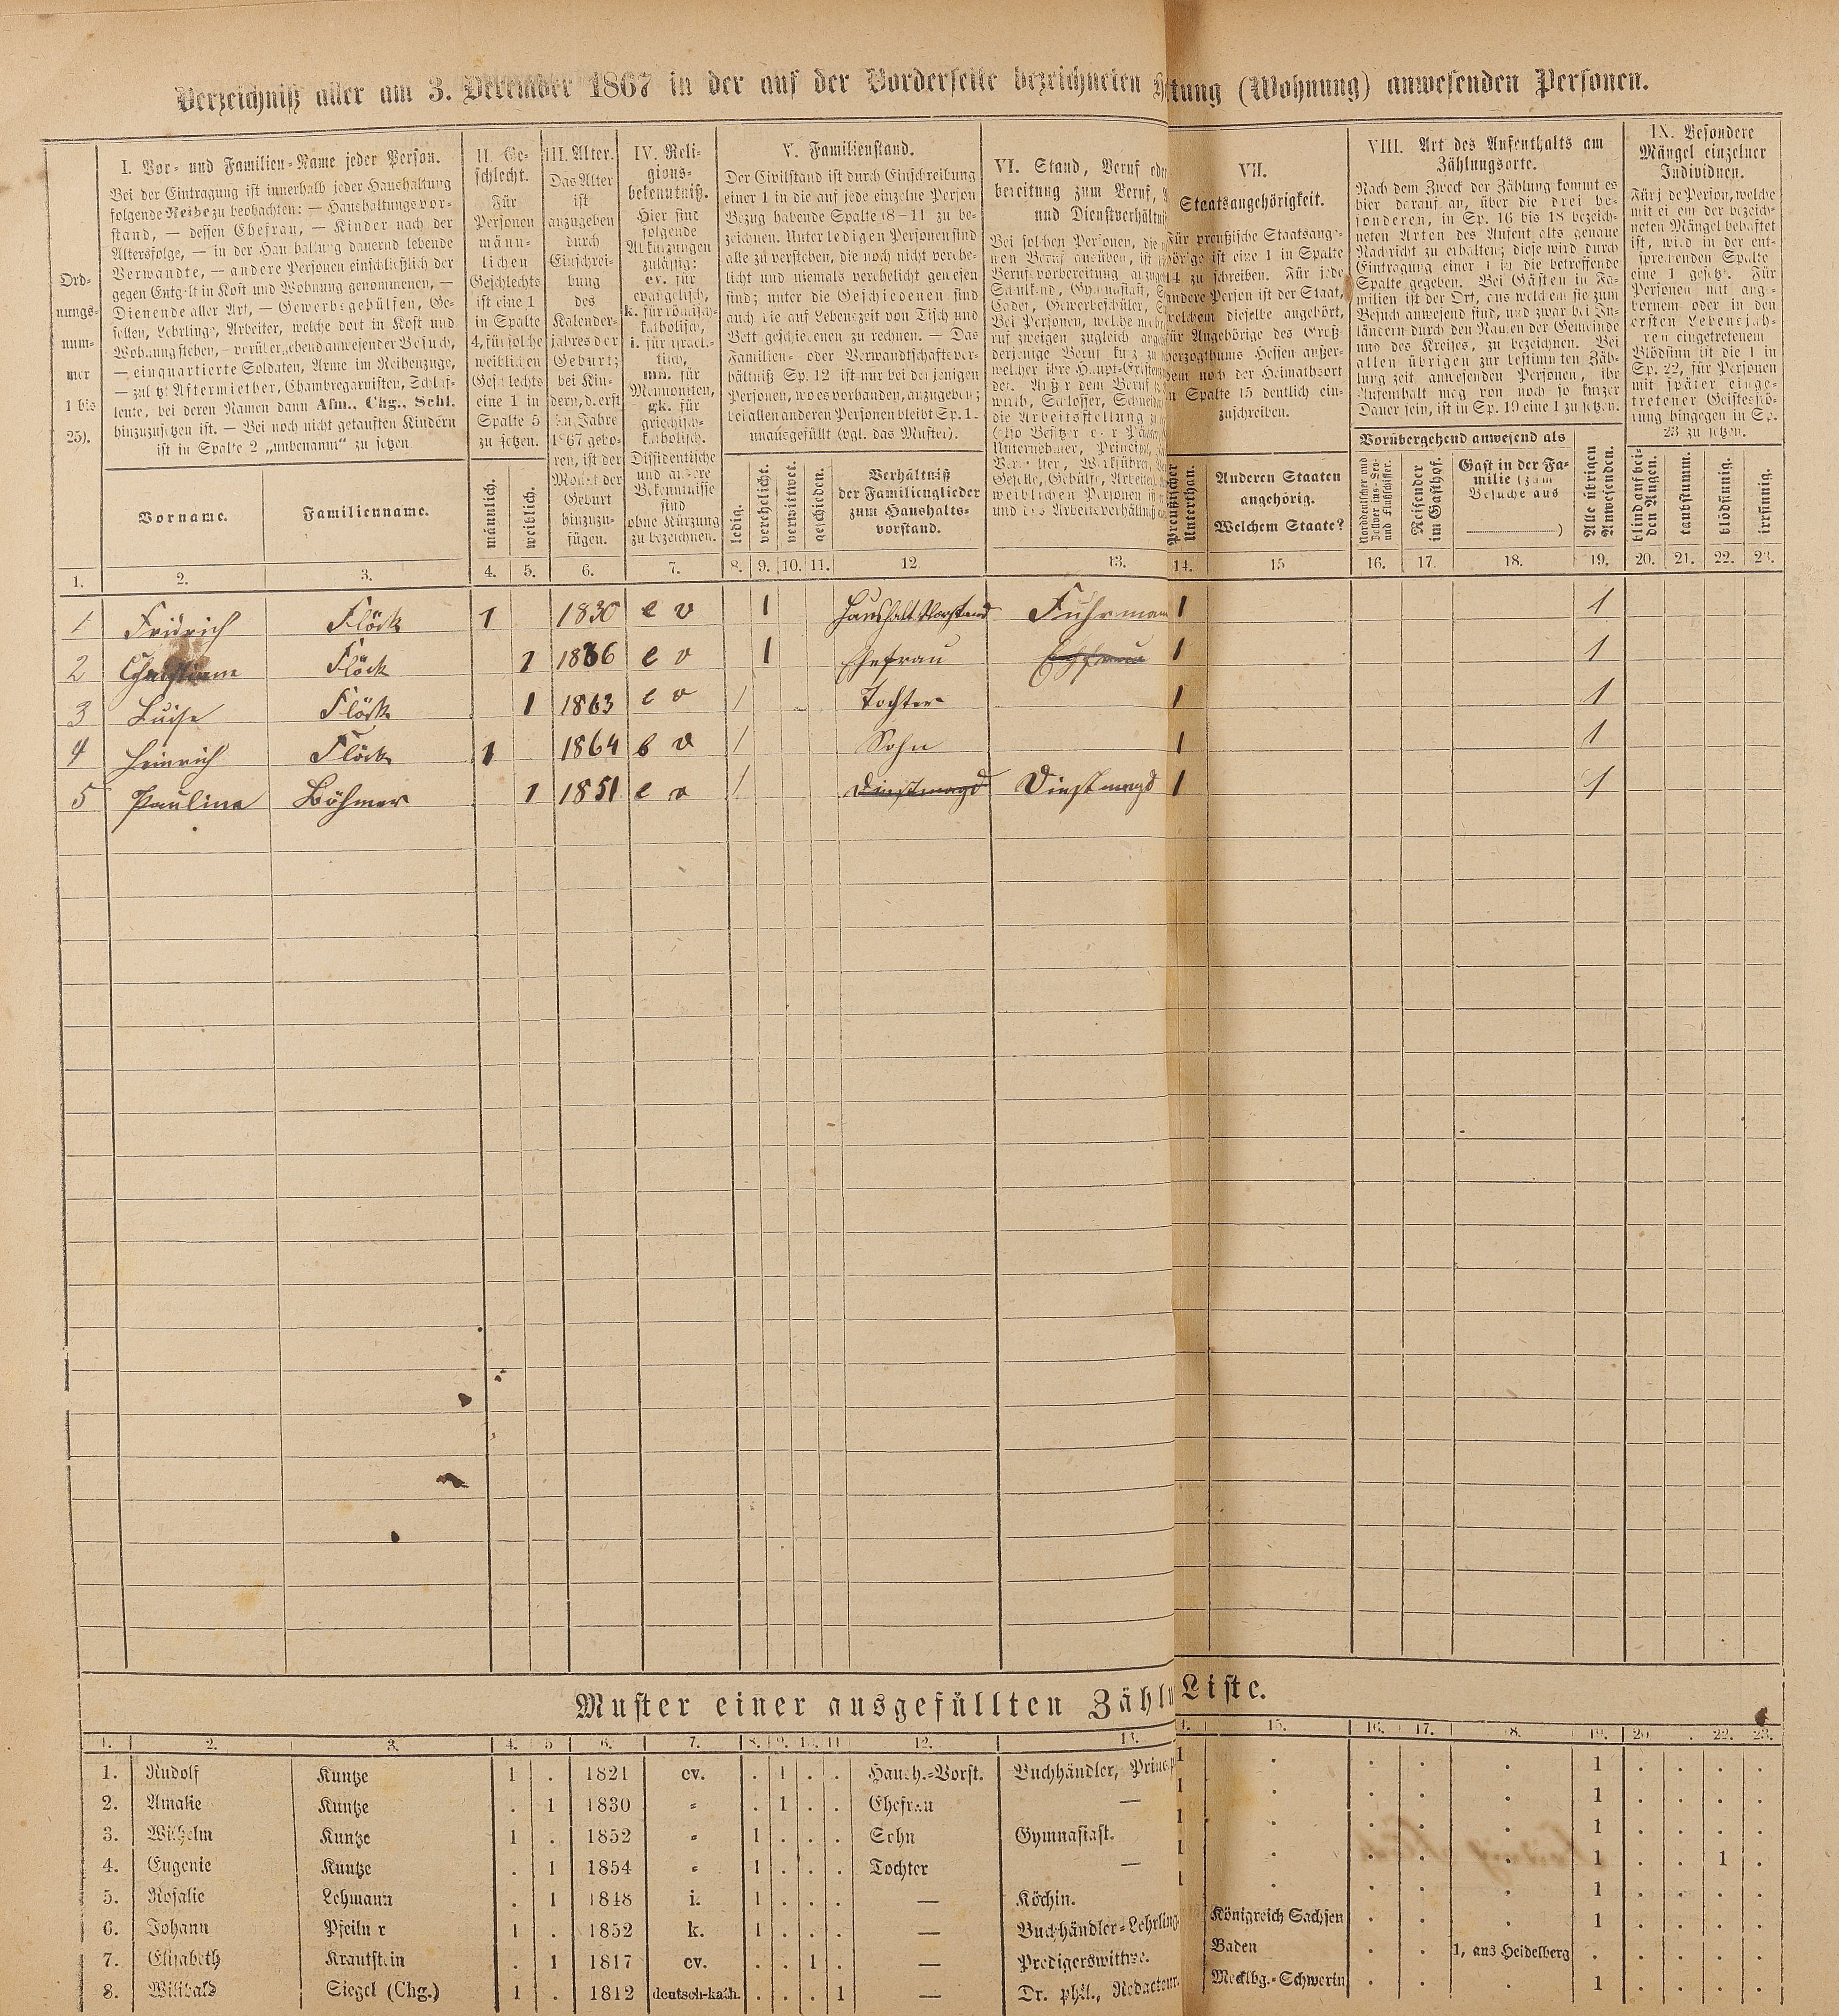 Verzeichniß aller am 3. December 1867 in der auf der Vorderseite bezeichneten tung (Wohnung) anwesenden Personen.
Ord-
nungs-
num-
mer
1 bis
25).
I. Vor- und Familien-Name jeder Person.
Bei der Eintragung ist innerhalb jeder Haushaltung
folgende Reihe zu beobachten: — Haushaltungsvor-
stand, — dessen Ehefrau, — Kinder nach der
Altersfolge, — in der Haushaltung dauernd lebende
Verwandte, — andere Personen einschließlich der
gegen Entgelt in Kost und Wohnung genommenen, —
Dienende aller Art, — Gewerbsgehülfen, Ge-
sellen, Lehrlinge, Arbeiter, welche dort in Kost und
Wohnung stehen, — vorübergehend anwesender Besuch,
— einquartierte Soldaten, Arme im Reihenzuge,
— zuletzt Aftermiether, Chambregarnisten, Schlaf-
leute, bei deren Namen dann Afm., Chg., Schl.
hinzuzusetzen ist. — Bei noch nicht getauften Kindern
ist in Spalte 2 „unbenannt“ zu setzen
Vorname.
Familienname.
II. Ge-
schlecht.
Für
Personen
männ-
lichen
Geschlechts
ist eine 1
in Spalte
4, für solche
weiblichen
Geschlechts
eine 1 in
Spalte 5
zu setzen.
männlich.
weiblich.
III. Alter.
Das Alter
ist
anzugeben
durch
Einschrei-
bung
des
Kalender-
jahres der
Geburt;
bei Kin-
dern, d. erst
im Jahre
1867 gebo-
ren, ist der
Monat der
Geburt
hinzuzu-
fügen.
IV. Reli-
gions-
bekenntniß.
Hier sind
folgende
Abkürzungen
zulässig:
ev. für
evangelisch,
k. für römisch-
katholisch,
i. für israeli-
tisch,
mn. für
Mennoniten,
gk. für
griechisch-
katholisch.
Dissidentische
und andere
Bekenntnisse
sind
ohne Kürzung
zu bezeichnen.
V. Familienstand.
Der Civilstand ist durch Einschreibung
einer 1 in die auf jede einzelne Person
Bezug habende Spalte (8–11 zu be-
zeichnen. Unter ledigen Personen sind
alle zu verstehen, die noch nicht verehe-
licht und niemals verehelicht gewesen
sind; unter die Geschiedenen sind
auch die auf Lebenszeit von Tisch und
Bett geschiedenen zu rechnen. — Das
Familien- oder Verwandtschaftsver-
hältniß Sp. 12 ist nur bei denjenigen
Personen, wo es vorhanden, anzugeben;
bei allen anderen Personen bleibt Sp. 1.
unausgefüllt (vgl. das Muster).
ledig.
verehelicht.
verwittwet.
geschieden.
Verhältniß
der Familienglieder
zum Haushalts-
vorstand.
VI. Stand, Beruf ode
bereitung zum Beruf,
und Dienstverhältni
Bei solchen Personen, die
nen Beruf ausüben, ist
Berufsvorbereitung anzuge
VII.
Staatsangehörigkeit.
Für preußische Staatsange-
hörige ist eine 1 in Spalte
14 zu schreiben. Für jede
andere Person ist der Staat,
welchem dieselbe angehört,
für Angehörige des Groß-
herzogthums Hessen außer-
dem noch der Heimathsort
in Spalte 15 deutlich ein-
zuschreiben.
Preußischer
Unterthan.
Anderen Staaten
angehörig.
Welchem Staate?
VIII. Art des Aufenthalts am
Zählungsorte.
Nach dem Zweck der Zählung kommt es
hier darauf an, über die drei be-
sonderen, in Sp. 16 bis 18 bezeich-
neten Arten des Aufenthalts genaue
Nachricht zu erhalten; diese wird durch
Eintragung einer 1 in die betreffende
Spalte gegeben. Bei Gästen in Fa-
milien ist der Ort, aus welchem sie zum
Besuch anwesend sind, und zwar bei In-
ländern durch den Namen der Gemeinde
und des Kreises, zu bezeichnen. Bei
allen übrigen zur bestimmten Zäh-
lungszeit anwesenden Personen, ihr
Aufenthalt mag von noch so kurzer
Dauer sein, ist in Sp. 19 eine 1 zu setzen.
Vorübergehend anwesend als
Norddeutscher und
Zollvereins-See-
und Flußschiffer.
Reisender
im Gasthof.
Gast in der Fa-
milie (zum
Besuche aus
)
Alle übrigen
Anwesenden.
IX. Besondere
Mängel einzelner
Individuen.
Für jede Person, welche
mit einem der bezeich-
neten Mängel behaftet
ist, wird in der ent-
sprechenden Spalte
eine 1 gesetzt. Für
Personen mit ange-
bornem oder in den
ersten Lebensjah-
ren eingetretenem
Blödsinn ist die 1 in
Sp. 22, für Personen
mit später einge-
tretener Geistesstö-
rung hingegen in Sp.
23 zu setzen.
blind auf bei-
den Augen.
taubstumm.
blödsinnig.
irrsinnig.
1. 2. 3. 4. 5. 6. 7. 8. 9. 10. 11. 12 13. 14. 15 16. 17. 18. 19. 20. 21. 22. 23.
1 Fridrich Flöck 1 1830 ev 1 Haushalt Vorstand Fuhrmann 1 1
2 Christiane Flöck 1 1836 ev 1 Ehefrau Ehefrau 1 1
3 Luise Flöck 1 1863 ev 1 Tochter 1 1
4 Heinrich Flöck 1 1864 ev 1 Sohn 1 1
5 Pauline Böhmer 1 1851 ev 1 Dienstmagd Dienstmagd 1 1
Muster einer ausgefüllten Zähl Liste.
1. 2. 3. 4. 5 6. 7. 8. 9. 10. 11 12. 13. 15. 16. 17. 18. 19. 20 . 22. 23.
1. Rudolf Kuntze 1 . 1821 ev. . 1 . . Haush.-Vorst. Buchhändler, Princip 1 . . . . 1 . . . .
2. Amalie Kuntze . 1 1830 „ . 1 . . Ehefrau — 1 . . . . 1 . . . .
3. Wilhelm Kuntze 1 . 1852 „ 1 . . . Sohn Gymnasiast. 1 . . . . 1 . . . .
4. Eugenie Kuntze . 1 1854 „ 1 . . . Tochter — 1 . . . . 1 . . 1 .
5. Rosalie Lehmann . 1 1848 i. 1 . . . — Köchin. 1 . . . . 1 . . . .
6. Johann Pfeilner 1 . 1852 k. 1 . . . — Buchhändler-Lehrling Königreich Sachsen . . . 1 . . . .
7. Elisabeth Krautstein . 1 1817 ev. . . 1 . — Predigerswittwe. Baden . . 1, aus Heidelberg . . . . .
8. Willibald Siegel (Chg.) 1 . 1812 deutsch-kath. . . . 1 — Dr. phil., Redacteur. Mecklbg.-Schwerin . . . 1 . . . .